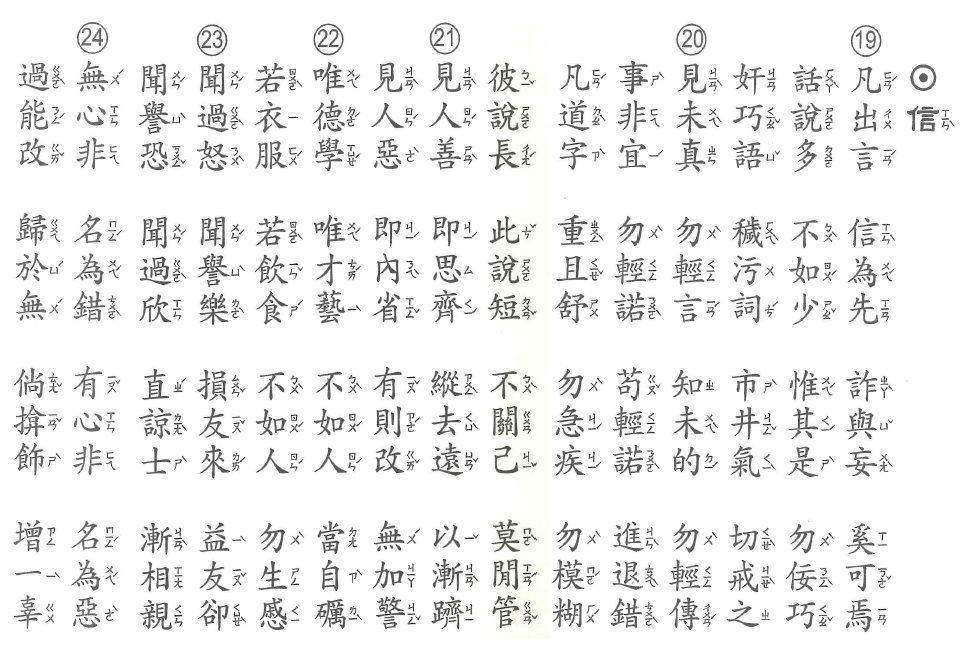 ⊙信
⑲凡出言 信為先 詐與妄 奚可焉
話說多 不如少 惟其是 勿佞巧
奸巧語 穢污詞 市井氣 切戒之
⑳見未真 勿輕言 知未的 勿輕傳
事非宜 勿輕諾 苟輕諾 進退錯
凡道字 重且舒 勿急疾 勿模糊
彼說長 此說短 不關己 莫閒管
㉑見人善 即思齊 縱去遠 以漸躋
見人惡 即內省 有則改 無加警
㉒唯德學 唯才藝 不如人 當自礪
若衣服 若飲食 不如人 勿生慼
㉓聞過怒 聞譽樂 損友來 益友卻
聞譽恐 聞過欣 直諒士 漸相親
㉔無心非 名為錯 有心非 名為惡
過能改 歸於無 倘揜飾 增一辜